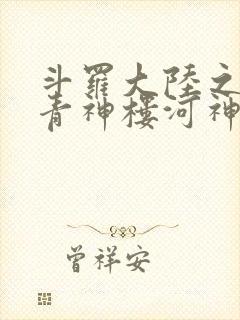 斗羅大陸之
青神樓河神
曾祥安